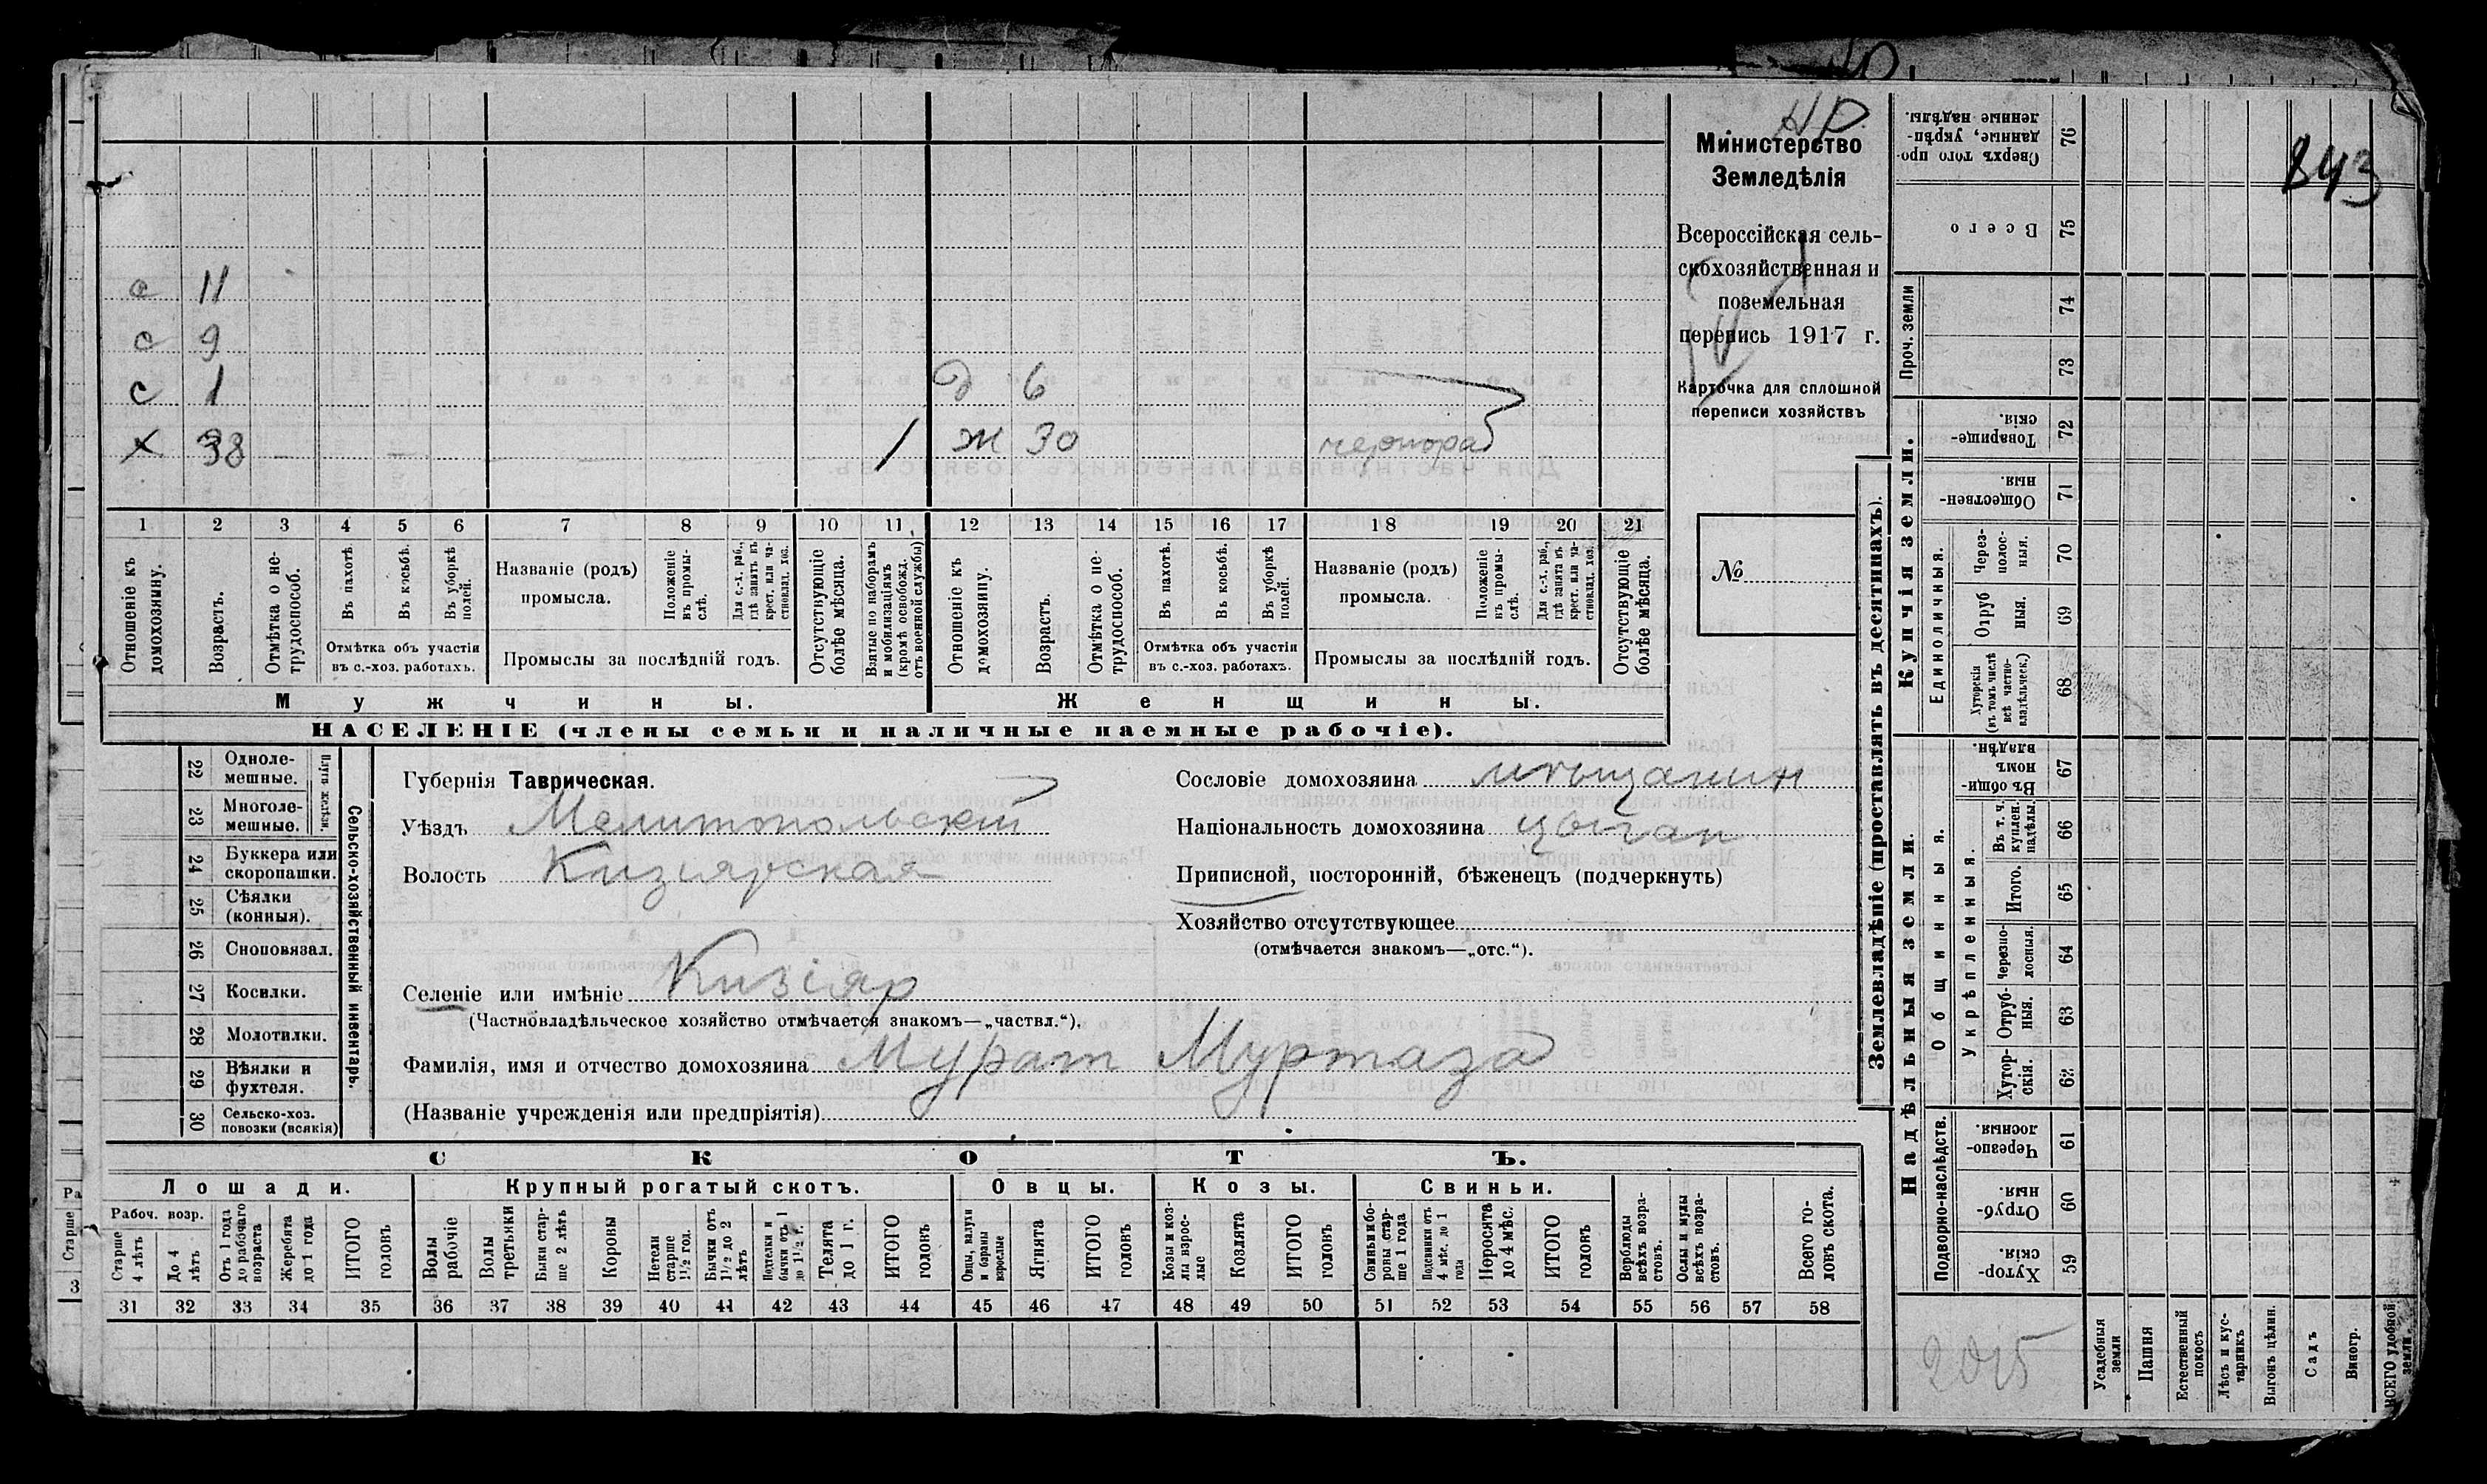 НР.
843
Министерство
Земледѣлія
Всероссійская сель-
скохозяйственная и
поземельная
перепись 1917 г.
Карточка для сплошной
переписи хозяйствъ
№
с 11
с 9
с 1 д 6
х 38 1 ж 30 чернора
1 2 3 4 5 6 7 8 9 10 11 12 13 14 15 16 17 18 19 20 21
Отношеніе къ домохозяину.
Возрастъ.
Отмѣтка о не-трудоспособ.
Въ пахотѣ.
Въ косьбѣ.
Въ уборкѣ полей.
Отмѣтка объ участіи
въ с.-хоз. работахъ.
Названіе (родъ)
промысла.
Положеніе въ промы-слѣ.
Для с.-х. раб., гдѣ занятъ въ крест. или ча-стновлад. хоз.
Промыслы за послѣдній годъ.
Отсутствующіе болѣе мѣсяца.
Взятые по наборамъ и мобилизаціямъ (кромѣ освобожд. отъ военной службы)
Отношеніе къ домохозяину.
Возрастъ.
Отмѣтка о не-трудоспособ.
Въ пахотѣ.
Въ косьбѣ.
Въ уборкѣ полей.
Отмѣтка объ участіи
въ с.-хоз. работахъ.
Названіе (родъ)
промысла.
Положеніе въ промы-слѣ.
Для с.-х. раб., гдѣ занята въ крест. или ча-стновлад. хоз.
Промыслы за послѣдній годъ.
Отсутствующіе болѣе мѣсяца.
Мужчины.
Женщины.
НАСЕЛЕНІЕ (члены семьи и наличные наемные рабочіе).
Сельско-хозяйственный инвентарь.
22 Одноле-мешные.
23 Многоле-мешные.
24 Буккера или скоропашки.
25 Сѣялки (конныя).
26 Сноповязал.
27 Косилки.
28 Молотилки.
29 Вѣялки и фухтеля.
30 Сельско-хоз. повозки (всякія)
Губернія Таврическая.
Уѣздъ Мелитопольскій
Волость Кизіярская
Сословіе домохозяина мѣщанин
Національность домохозяина цыган
Приписной, посторонній, бѣженецъ (подчеркнуть)
Хозяйство отсутствующее
(отмѣчается знакомъ—„отс.“).
Селеніе или имѣніе Кизіяр
(Частновладѣльческое хозяйство отмѣчается знакомъ—„частвл.“).
Фамилія, имя и отчество домохозяина Мурат Муртаза
(Названіе учрежденія или предпріятія)
СКОТЪ.
Лошади.
Крупный рогатый скотъ.
Овцы.
Козы.
Свиньи.
Рабоч. возр.
Старше 4 лѣтъ
До 4 лѣтъ
Отъ 1 года до рабочаго возраста
Жеребята до 1 года
ИТОГО головъ
Волы рабочіе
Волы третьяки
Быки стар-ше 2 лѣтъ
Коровы
Нетели старше 1½ год.
Бычки отъ 1½ до 2 лѣтъ
Подтелки и бычки отъ 1 до 1½ г.
Телята до 1 г.
ИТОГО головъ
Овцы, валухи и бараны взрослые
Ягнята
ИТОГО головъ
Козы и коз-лы взрос-лые
Козлята
ИТОГО головъ
Свиньи и бо-ровы стар-ше 1 года
Подсвинки отъ 4 мѣс. до 1 года
Поросята до 4 мѣс.
ИТОГО головъ
Верблюды всѣхъ возра-стовъ.
Ослы и мулы всѣхъ возра-стовъ.
Всего го-ловъ скота.
31 32 33 34 35 36 37 38 39 40 41 42 43 44 45 46 47 48 49 50 51 52 53 54 55 56 57 58
Землевладѣніе (проставлять въ десятинахъ).
Купчія земли.
Сверхъ того про-данные, укрѣп-ленные надѣлы. 76
Всего 75
Проч. земли
74
73
Товарище-скія. 72
Обществен-ныя. 71
Единоличныя.
Через-полос-ныя. 70
Отруб ныя. 69
Хуторскія (въ томъ числѣ всѣ частно-владѣльческ.) 68
Надѣльныя земли.
Общинныя.
Въ общи-номъ владѣн. 67
Укрѣпленныя.
Въ т. ч. куплен. надѣлы. 66
Итого. 65
Черезпо-лосныя. 64
Отруб-ныя. 63
Хутор-скія. 62
Подворно-наслѣдств.
Черезпо-лосныя. 61
Отруб-ныя 60
Хутор-скія. 59
2015
Усадебныя земли
Пашня
Естественный покосъ
Лѣсъ и кус-тарникъ
Выгонъ цѣлин.
Садъ
Виногр.
ВСЕГО удобной земли.
Ра
Старше
3